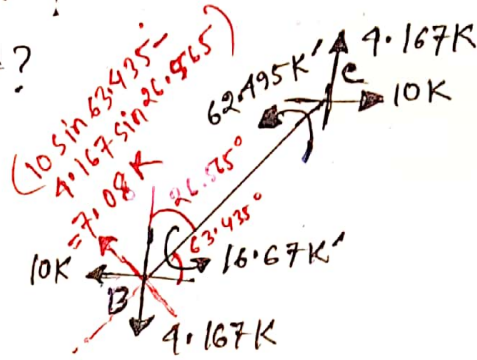 ?
(10 sin 63.435-
4.167 sin 26.565)
=7.08K
62.495K'
4.167K
C
10K
26.565°
63.435°
16.67K'
10K
B
4.167K